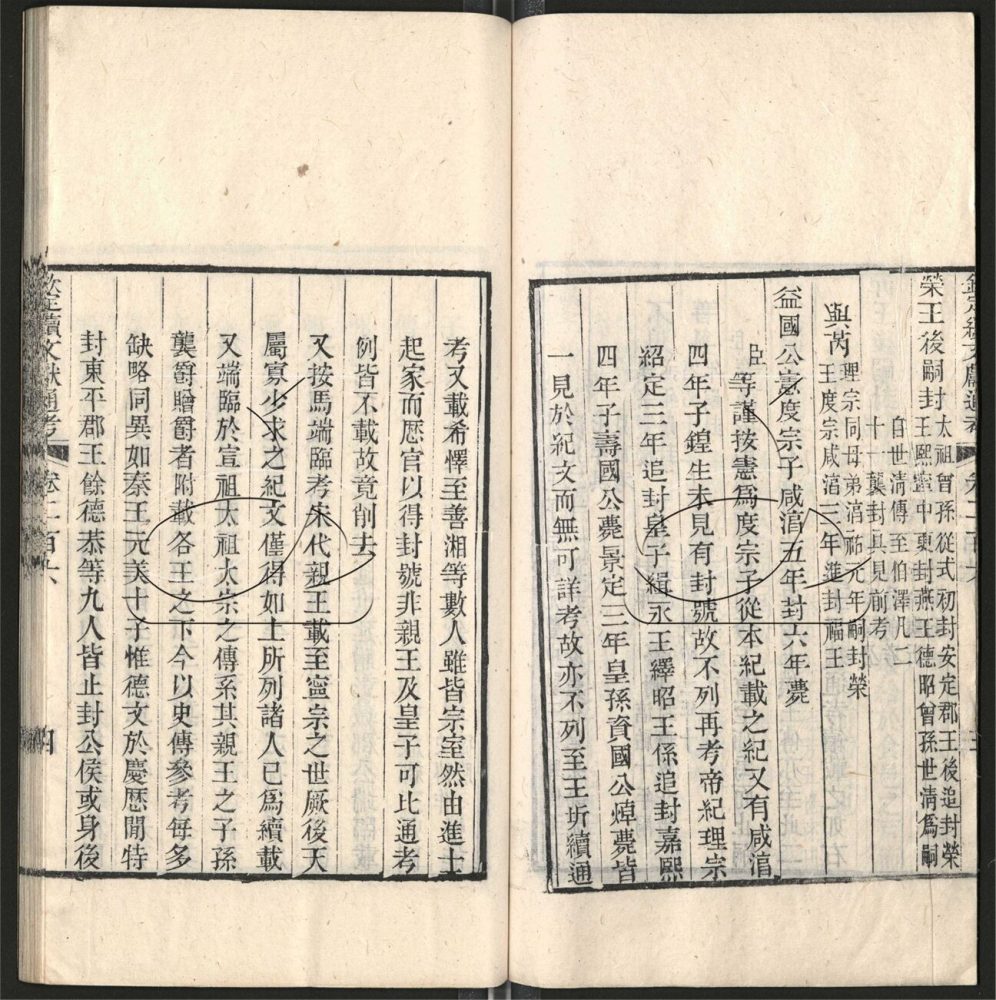 欽定續文獻通考 卷二百六
榮王後嗣封
太祖曾孫從式初封安定郡王後追封榮
王熙寧中更封燕王德昭曾孫世清爲嗣
自世清傳至伯澤凡二
十一襲封具見前考
與芮
理宗同母弟淳祐元年嗣封榮
王度宗咸淳三年進封福王
益國公憲度宗子咸淳五年封六年薨
臣等謹按憲爲度宗子從本紀載之紀又有咸淳
四年子鍠生未見有封號故不列再考帝紀理宗
紹定三年追封皇子緝永王繹昭王係追封嘉熙
四年子壽國公薨景定三年皇孫資國公焯薨皆
一見於紀文而無可詳考故亦不列至王圻續通
考又載希懌至善湘等數人雖皆宗室然由進士
起家而歷官以得封號非親王及皇子可比通考
例皆不載故竟削去
又按馬端臨考宋代親王載至寧宗之世厥後天
屬寡少求之紀文僅得如上所列諸人已爲續載
又端臨於宣祖太祖太宗之傳系其親王之子孫
襲爵贈爵者附載各王之下今以史傳參考每多
缺略同異如秦王元美十子惟德文於慶歷閒特
封東平郡王餘德恭等九人皆止封公侯或身後
欽定續文獻通考 卷二百六